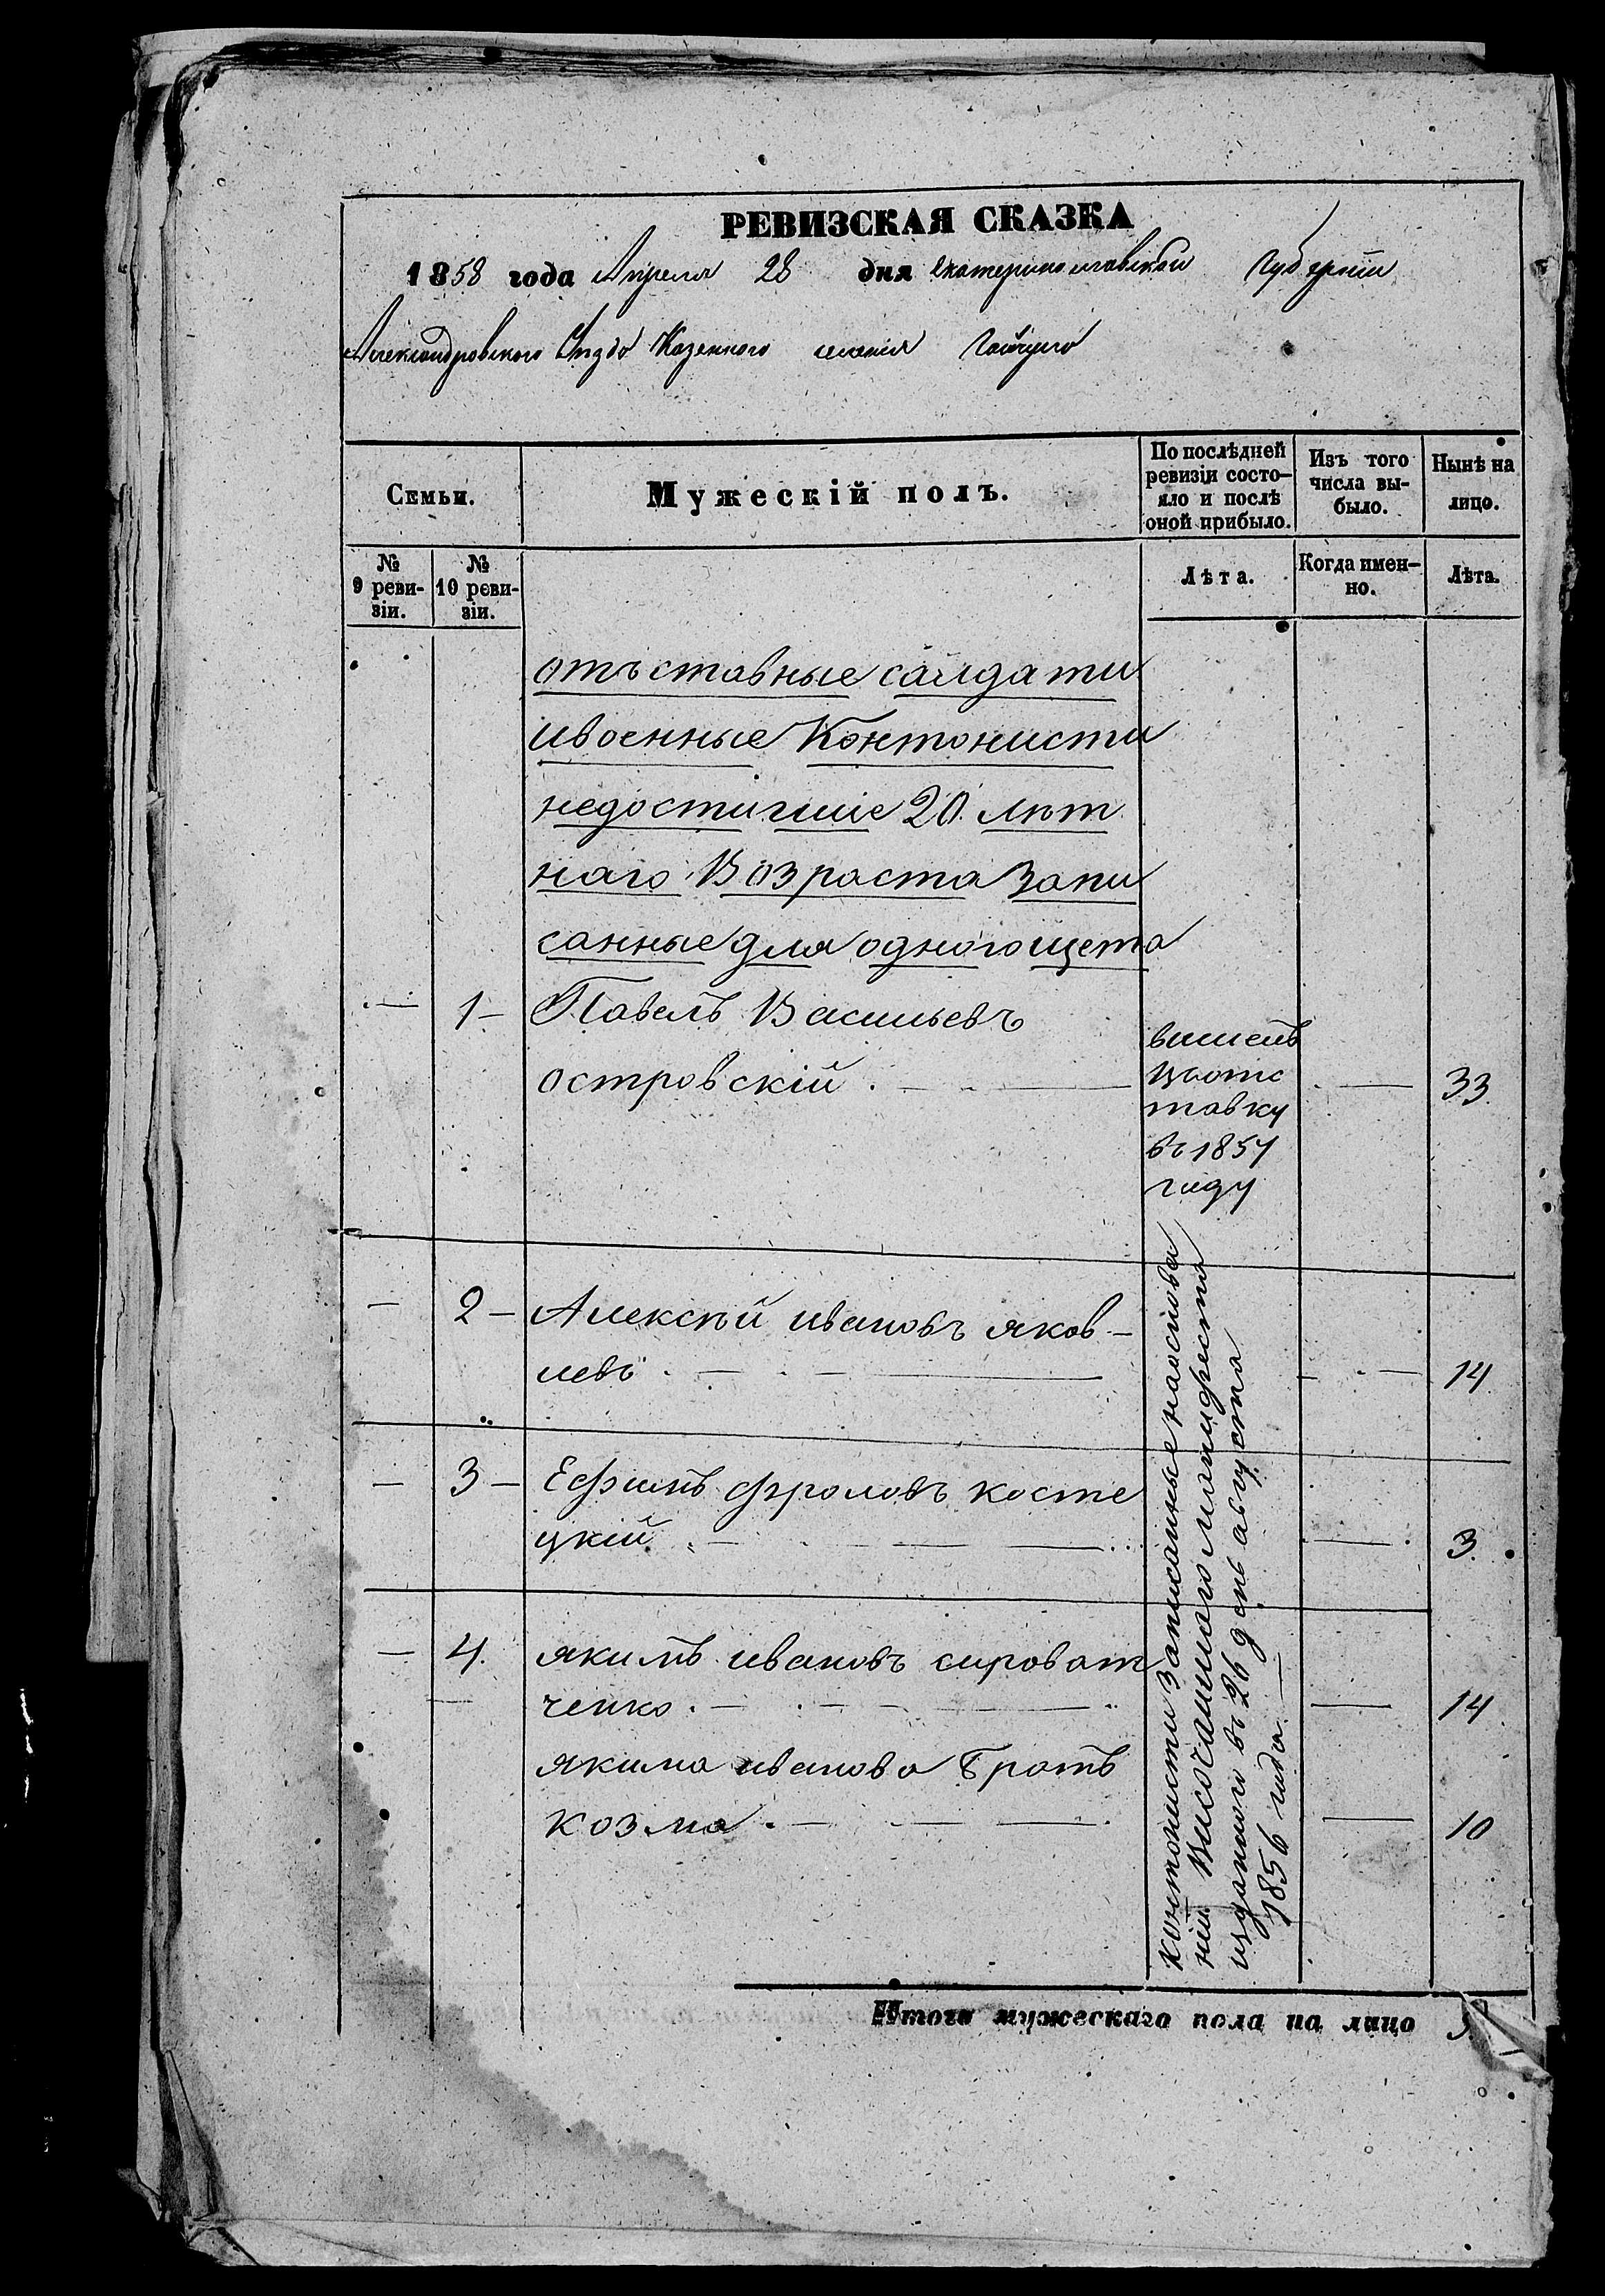 РЕВИЗСКАЯ СКАЗКА
1858 года Апреля 28 дня Екатеринославской Губернии
Александровского Уезда Казенного селения Гайчула
Семьи.
Мужескій полъ.
По послѣдней ревизіи состо-
яло и послѣ
оной прибыло.
Изъ того
числа вы-
было.
Нынѣ на
лицо.
№
9 реви-
зіи.
№
10 реви-
зіи.
Лѣта.
Когда имен-
но.
Лѣта.
отъставные салдати
ивоенные Контонисти
недостигшіе 20. лѣт
наго Возраста Запи
санные для одного щета
— 1 – Павелъ Васильевъ
островскій. — 33
вишелъ
вьотс
тавку
въ 1857
году
— 2 – Алексѣй ивановъ яков–
левъ. — 14
— 3 – Ефимъ фроловъ косте
цкій. — 3.
— 4. якимъ ивановъ сироват
ченко. — 14
якима иванова братъ
козма. — 10
контонисти Записанные наоснова
ніи Височайшаго Манифеста
изданого въ 26 день августа
1856 года —
Итого мужескаго пола на лицо 5